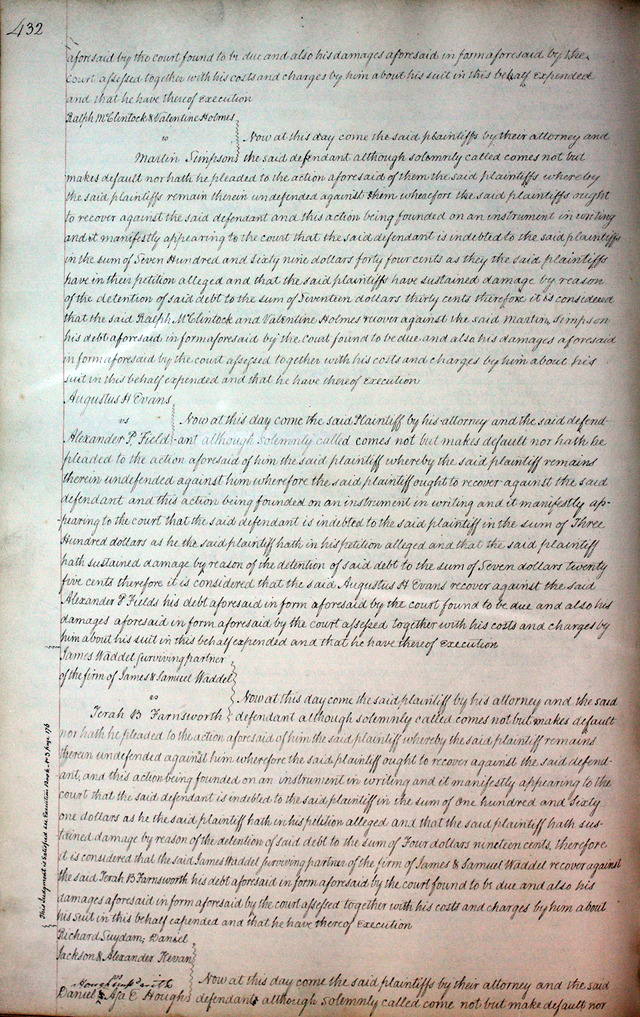 432
aforesaid by the court found to be due and also his damages aforesaid in form aforesaid by the
court assessed together with his costs and charges by him about his suit in this behalf expended
and that he have thereof execution
Ralph McClintock & Valentine Holmes
vs
Now at this day come the said plaintiffs by their attorney and
Martin Simpson the said defendant although solemnly called comes not but
makes default nor hath he pleaded to the action aforesaid of them the said plaintiffs whereby
the said plaintiffs remain therein undefended against them wherefore the said plaintiffs ought
to recover against the said defendant and this action being founded on an instrument in writing
and it manifestly appearing to the court that the said defendant is indebted to the said plaintiffs
in the sum of Seven Hundred and sixty nine dollars forty four cents as they the said plaintiffs
have in their petition alleged and that the said plaintiffs have sustained damage by reason
of the detention of said debt to the sum of Seventeen dollars thirty cents therefore it is considered
that the said Ralph McClintock and Valentine Holmes recover against the said Martin Simpson
his debt aforesaid in form aforesaid by the court found to be due and also his damages aforesaid
in form aforesaid by the court assessed together with his costs and charges by him about his
suit in this behalf expended and that he have thereof execution
Augustus H Evans
vs
Now at this day come the said Plaintiff by his attorney and the said defend-
Alexander P Field -ant although Solemnly called comes not but makes default nor hath he
pleaded to the action aforesaid of him the said plaintiff whereby the said plaintiff remains
therein undefended against him wherefore the said plaintiff ought to recover against the said
defendant and this action being founded on an instrument in writing and it manifestly ap-
-pearing to the court that the said defendant is indebted to the said plaintiff in the sum of Three
Hundred dollars as he the said plaintiff hath in his petition alleged and that the said plaintiff
hath sustained damage by reason of the detention of said debt to the sum of Seven dollars twenty
five cents therefore it is considered that the said Augustus H Evans recover against the said
Alexander P Fields his debt aforesaid in form aforesaid by the court found to be due and also his
damages aforesaid in form aforesaid by the court assessed together with his costs and charges by
him about his suit in this behalf expended and that he have thereof execution
James Waddel surviving partner
of the firm of James & Samuel Waddel
vs
Now at this day come the said plaintiff by his attorney and the said
Terah B Farnsworth defendant although solemnly called comes not but makes default
nor hath he pleaded to the action aforesaid of him the said plaintiff whereby the said plaintiff remains
therein undefended against him wherefore the said plaintiff ought to recover against the said defend-
ant, and this action being founded on an instrument in writing and it manifestly appearing to the
court that the said defendant is indebted to the said plaintiff in the sum of One hundred and Sixty
one dollars as he the said plaintiff hath in his petition alleged and that the said plaintiff hath sus-
tained damage by reason of the detention of said debt to the sum of Four dollars nineteen cents, therefore
it is considered that the said James Waddel surviving partner of the firm of James & Samuel Waddel recover against
the said Terah B Farnsworth his debt aforesaid in form aforesaid by the court found to be due and also his
damages aforesaid in form aforesaid by the court assessed together with his costs and charges by him about
his suit in this behalf expended and that he have thereof execution
This Judgment is Satisfied see Execution Book No 3 page 176
Richard Suydam, Daniel
Jackson & Alexander Kevan
vs
Now at this day come the said plaintiffs by their attorney and the said
Daniel & Asa E Hough defendants although solemnly called come not but make default nor